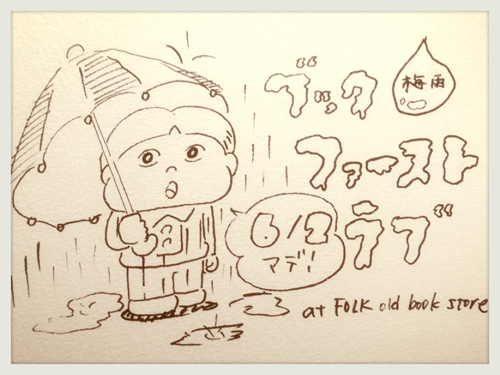 ブック
梅雨
ファースト
ラブ
6/2
マデ!
at FOLK old book store